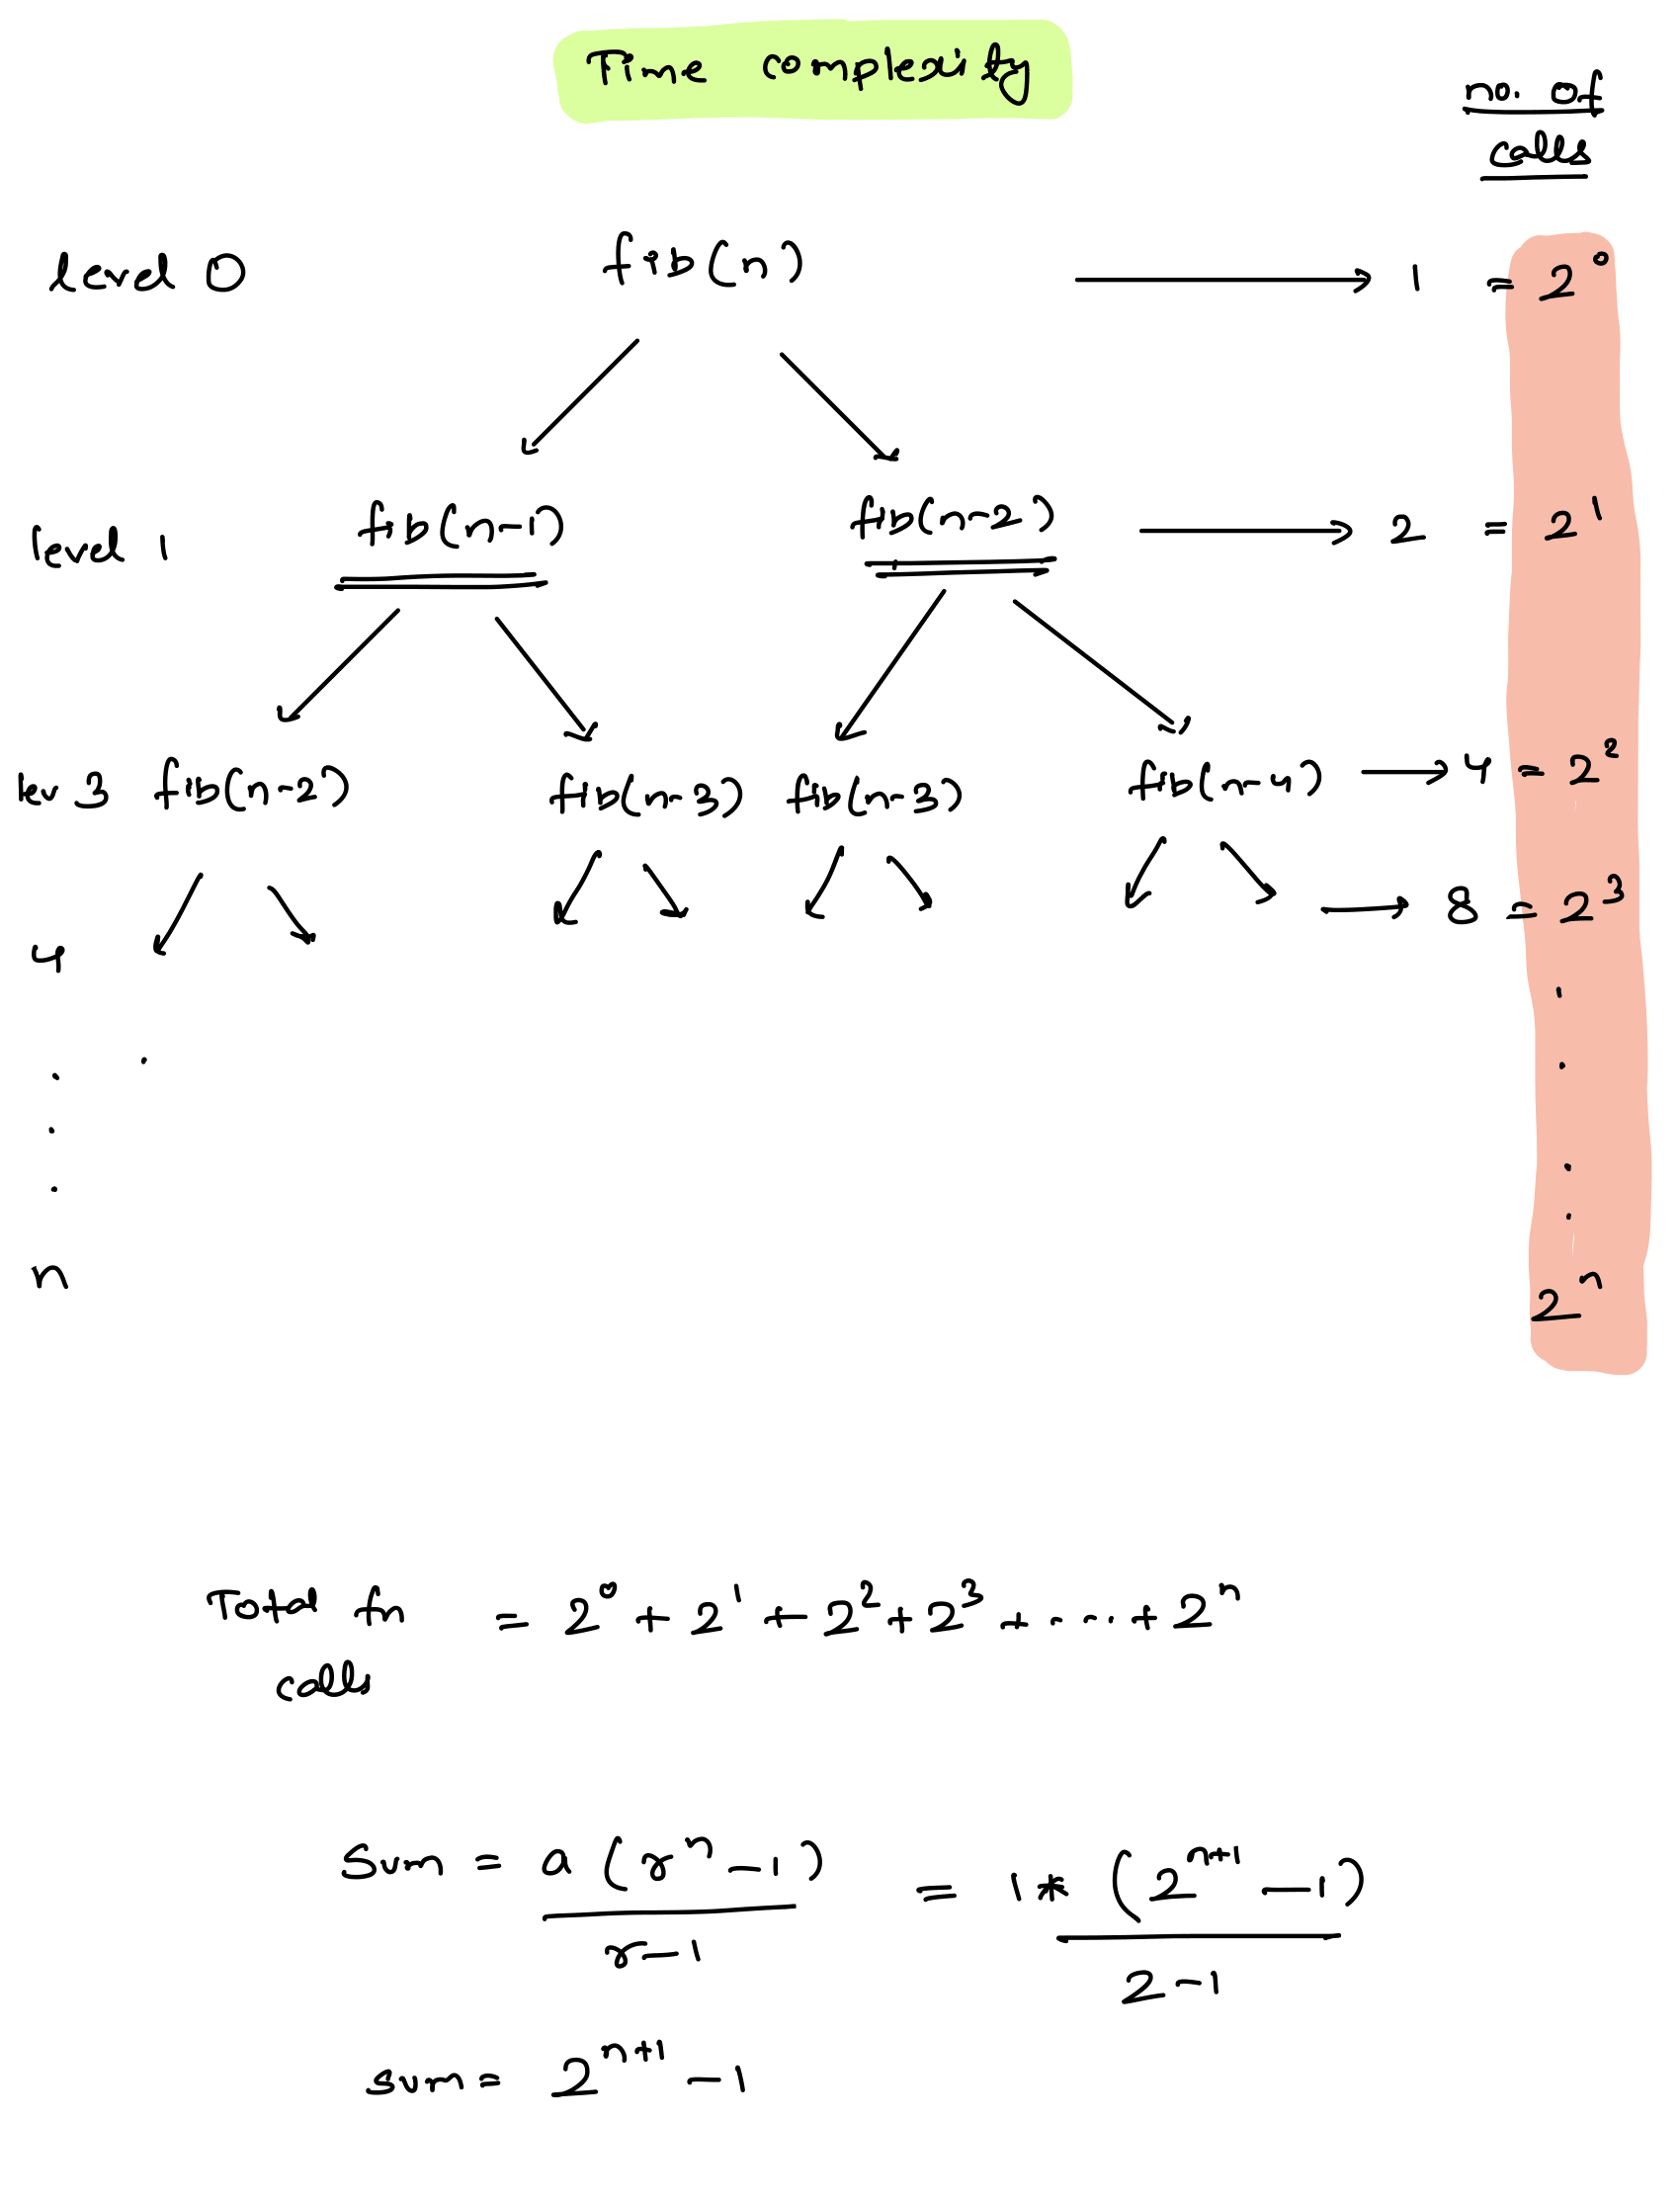 Time complexity
no. of
calls
level 0 fib(n) → 1 = 2⁰
level 1 fib(n-1) fib(n-2) → 2 = 2¹
lev 3 fib(n-2) fib(n-3) fib(n-3) fib(n-4) → 4 = 2²
→ 8 = 2³
4
.
.
.
n
2ⁿ
Total fn = 2⁰ + 2¹ + 2² + 2³ + .... + 2ⁿ
calls
Sum = a (rⁿ - 1) / r-1 = 1 * (2ⁿ⁺¹ - 1) / 2-1
sum = 2ⁿ⁺¹ - 1